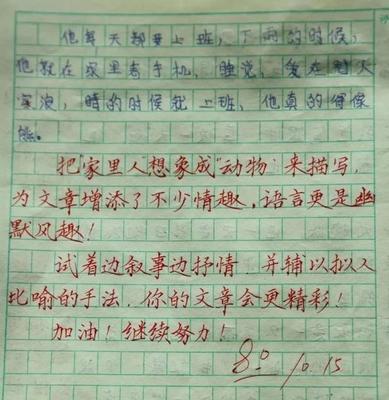 他每天都要上班，下雨的时候，
他就在家里看手机，睡觉，
，晴的时候就上班，他真的好像
熊。
把家里人想象成“动物”来描写，
为文章增添了不少情趣，语言更是幽
默风趣！
试着边叙事边抒情，并辅以拟人
比喻的手法，你的文章会更精彩！
加油！继续努力！
80 10.15